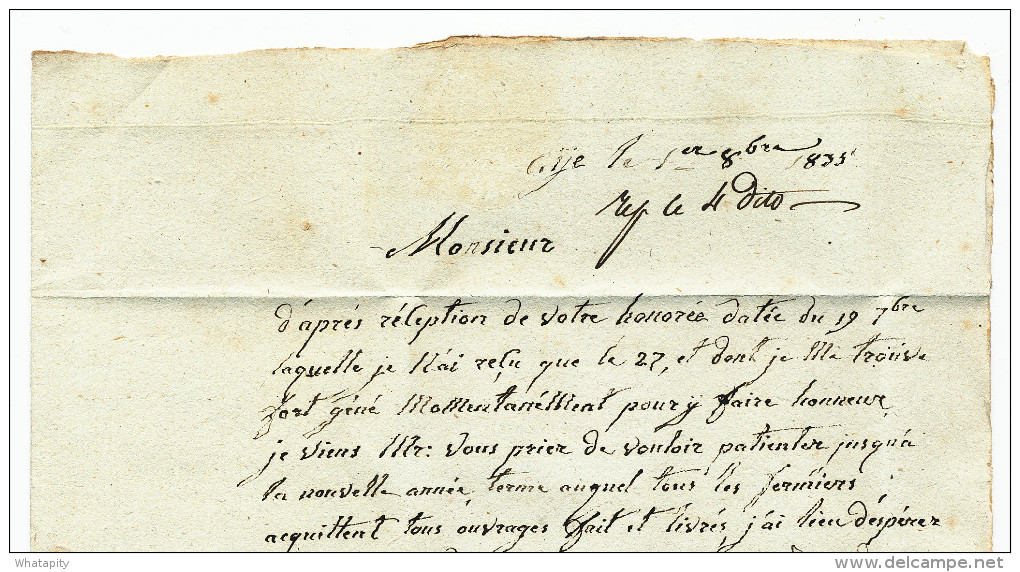 le 1er 8bre 1835
le 4 dito
Monsieur
d'après réception de votre honorée datée du 19 7bre
laquelle je n'ai reçu que le 27, et dont je me trouve
fort géné momentanément pour y faire honneur
je viens Mr: vous prier de vouloir patienter jusqu'à
la nouvelle année, terme auquel tous les fermiers
acquittent tous ouvrages fait et livrés, j'ai lieu d'éspérer
Whatapity
delcampe.net